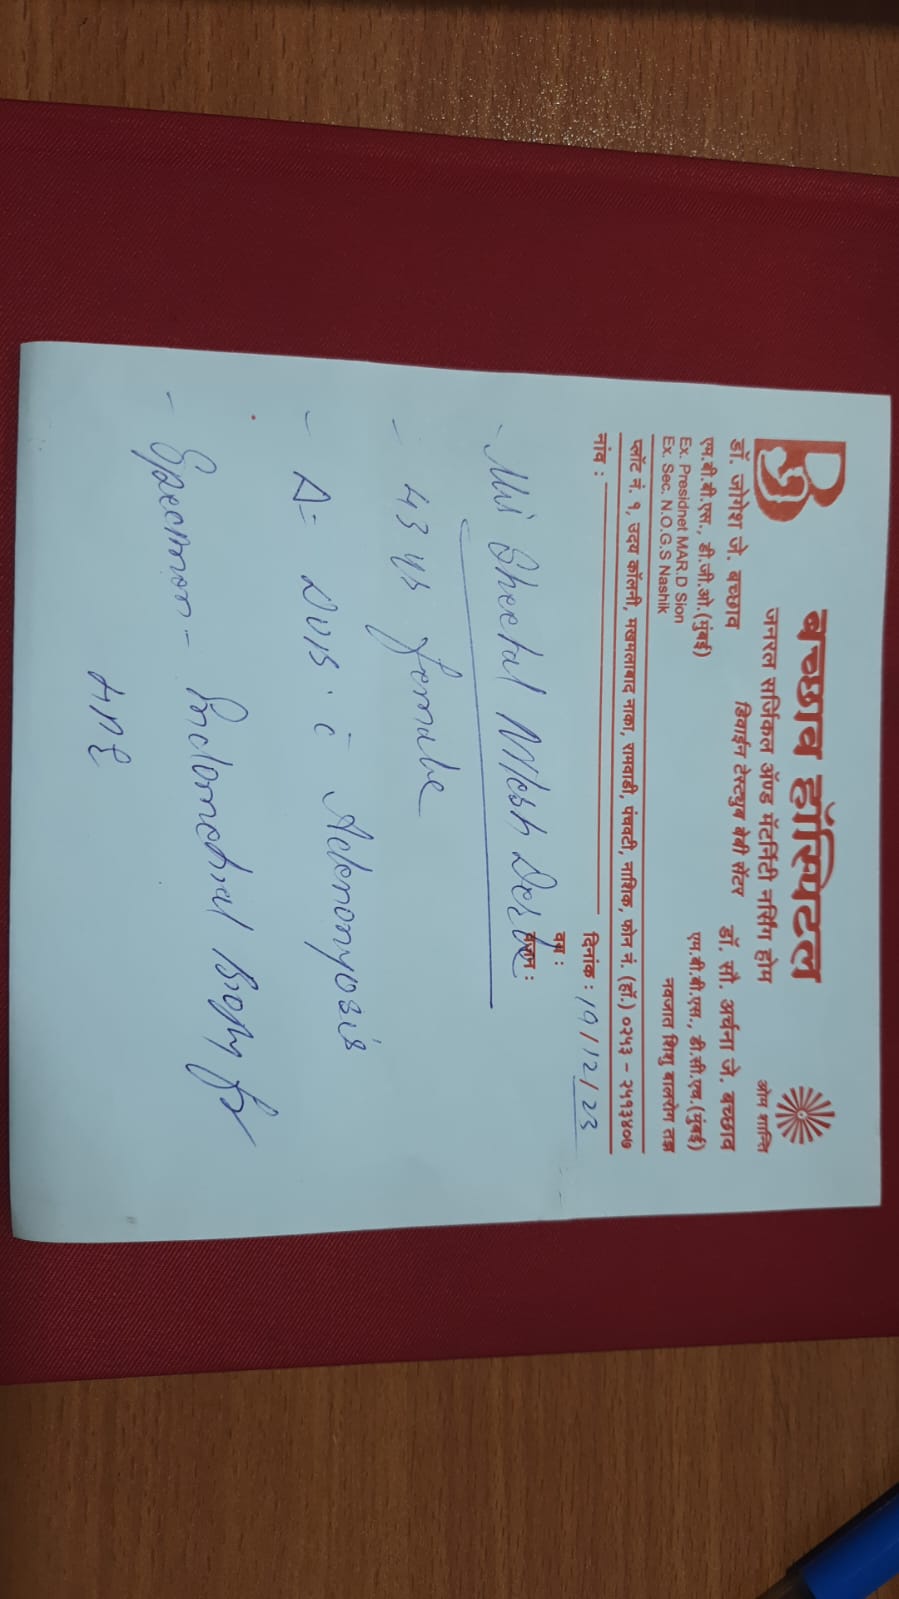 बच्छाव हॉस्पिटल
जनरल सर्जिकल ॲण्ड मॅटर्निटी नर्सिंग होम
डिवाईन टेस्टट्युब बेबी सेंटर
ओम शान्ति
डॉ. जोगेश जे. बच्छाव
एम.बी.बी.एस., डी.जी.ओ.(मुंबई)
Ex. Presidnet MAR.D Sion
Ex. Sec. N.O.G.S Nashik
डॉ. सौ. अर्चना जे. बच्छाव
एम.बी.बी.एस., डी.सी.एच.(मुंबई)
नवजात शिशु बालरोग तज्ञ
प्लॉट नं. १, उदय कॉलनी, मखमलाबाद नाका, रामवाडी, पंचवटी, नाशिक, फोन नं. (हॉ.) ०२५३ - २५१३४०७
नांव :
दिनांक : 19/12/23
वय :
वजन :
- Sheetal
- 43 yr female
- A= AUB. c̄ Adenomyosis
- Specimen - Endometrial Biopsy for
HPE